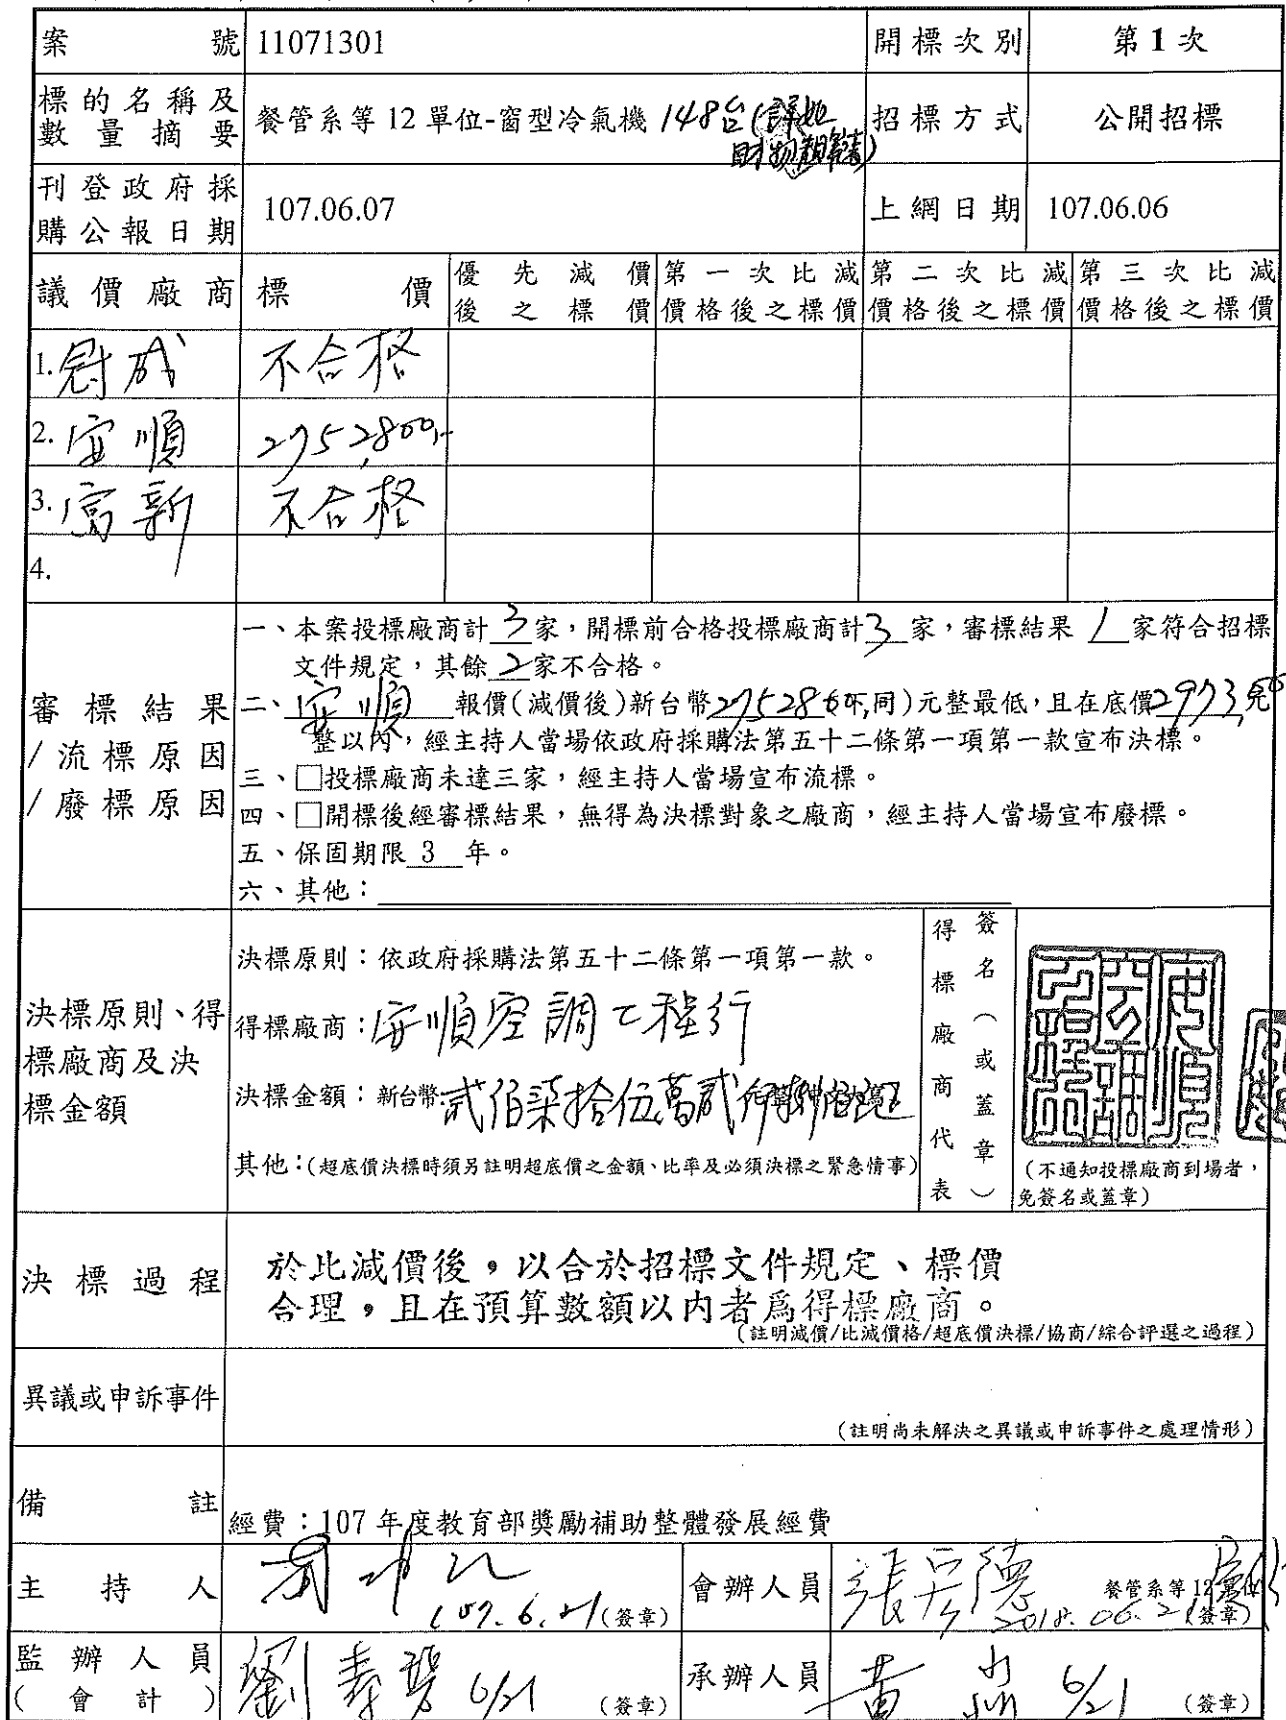 案號 11071301 開標次別 第1次
標的名稱及數量摘要 餐管系等12單位-窗型冷氣機 148台(詳如財物 招標方式 公開招標
刊登政府採購公報日期 107.06.07 上網日期 107.06.06
議價廠商 標價 優先減價後之標價 第一次比減價格後之標價 第二次比減價格後之標價 第三次比減價格後之標價
1. 冠成 不合格
2. 安順 2752,800,-
3. 富新 不合格
4.
審標結果/流標原因/廢標原因
一、本案投標廠商計3家,開標前合格投標廠商計3家,審標結果1家符合招標
文件規定,其餘2家不合格。
二、安順 報價(減價後)新台幣275280元(下同)元整最低,且在底價2973,元
整以內,經主持人當場依政府採購法第五十二條第一項第一款宣布決標。
三、□投標廠商未達三家,經主持人當場宣布流標。
四、□開標後經審標結果,無得為決標對象之廠商,經主持人當場宣布廢標。
五、保固期限 3 年。
六、其他:
決標原則、得標廠商及決標金額
決標原則:依政府採購法第五十二條第一項第一款。
得標廠商:安順空調工程行
決標金額:新台幣貳佰柒拾伍萬貳仟
其他:(超底價決標時須另註明超底價之金額、比率及必須決標之緊急情事)
得標廠商代表簽名(或蓋章)
(不通知投標廠商到場者,
免簽名或蓋章)
決標過程
於比減價後,以合於招標文件規定、標價
合理,且在預算數額以內者為得標廠商。
(註明減價/比減價格/超底價決標/協商/綜合評選之過程)
異議或申訴事件
(註明尚未解決之異議或申訴事件之處理情形)
備註
經費:107年度教育部獎勵補助整體發展經費
主持人 107.6.21 (簽章) 會辦人員 餐管系等12單位 2018.06.21 (簽章)
監辦人員(會計) 6/21 (簽章) 承辦人員 6/21 (簽章)